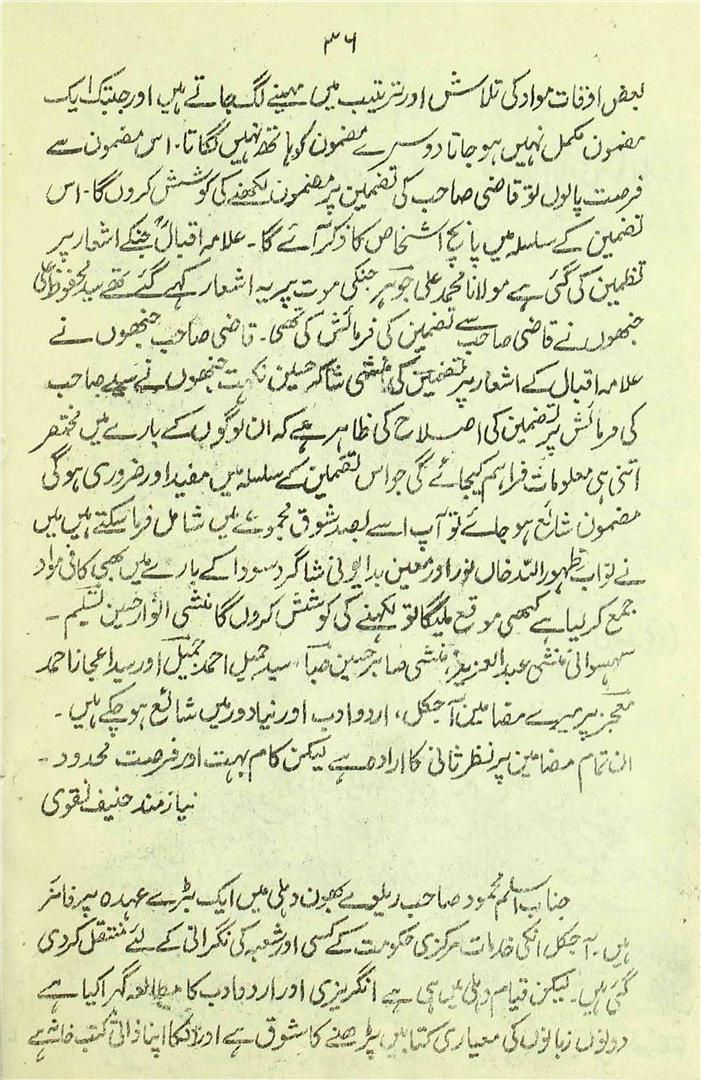 ۳۶
بعض اوقات مواد کی تلاش اور ترتیب میں مہینے لگ جاتے ہیں اور جبتک ایک
مضمون مکمل نہیں ہو جاتا دوسرے مضمون کو ہاتھ نہیں لگاتا۔ اس مضمون سے
فرصت پالوں تو قاضی صاحب کی تضمین پر مضمون لکھنے کی کوشش کروں گا۔ اس
تضمین کے سلسلہ میں پانچ اشخاص کا ذکر آئے گا۔ علامہ اقبالؒ جنکے اشعار پر
تضمین کی گئی ہے مولانا محمد علی جوہر جنکی موت پر یہ اشعار کہے گئے تھے سید محفوظ علی
جنھوں نے قاضی صاحب سے تضمین کی فرمائش کی تھی۔ قاضی صاحب جنھوں نے
علامہ اقبال کے اشعار پر تضمین کی منشی شاکر حسین نکہت جنھوں نے سید صاحب
کی فرمائش پر تضمین کی اصلاح کی ظاہر ہے کہ ان لوگوں کے بارے میں مختصر
اتنی ہی معلومات فراہم کیجائے گی جو اس تضمین کے سلسلہ میں مفید اور ضروری ہوگی
مضمون شائع ہو جائے تو آپ اسے بصد شوق مجموعے میں شامل فرما سکتے ہیں میں
نے نواب ظہور اللہ خاں نور اور معین بدایونی شاگرد سودا کے بارے میں بھی کافی مواد
جمع کر لیا ہے کبھی موقع ملیگا تو لکھنے کی کوشش کروں گا منشی انوار حسین تسلیم ۔
سہسوانی منشی عبد العزیز، منشی صابر حسین صبا، سید جمیل احمد جمیل اور سید اعجاز احمد
معجز پر میرے مضامین آجکل، اردو ادب اور نیا دور میں شائع ہو چکے ہیں ۔
ان تمام مضامین پر نظر ثانی کا ارادہ ہے لیکن کام بہت اور فرصت محدود ۔
نیاز مند حنیف نقوی
جناب اسلم محمود صاحب ریلوے بھون دہلی میں ایک بڑے عہدہ پر فائز
ہیں ۔ آجکل انکی خدمات مرکزی حکومت کے کسی اور شعبہ کی نگرانی کے لئے منتقل کردی
گئی ہیں ۔ لیکن قیام دہلی میں ہی ہے انگریزی اور اردو ادب کا مطالعہ گہرا کیا ہے
دونوں زبانوں کی معیاری کتابیں پڑھنے کا شوق ہے اور انکا اپنا ذاتی کتب خانہ ہے